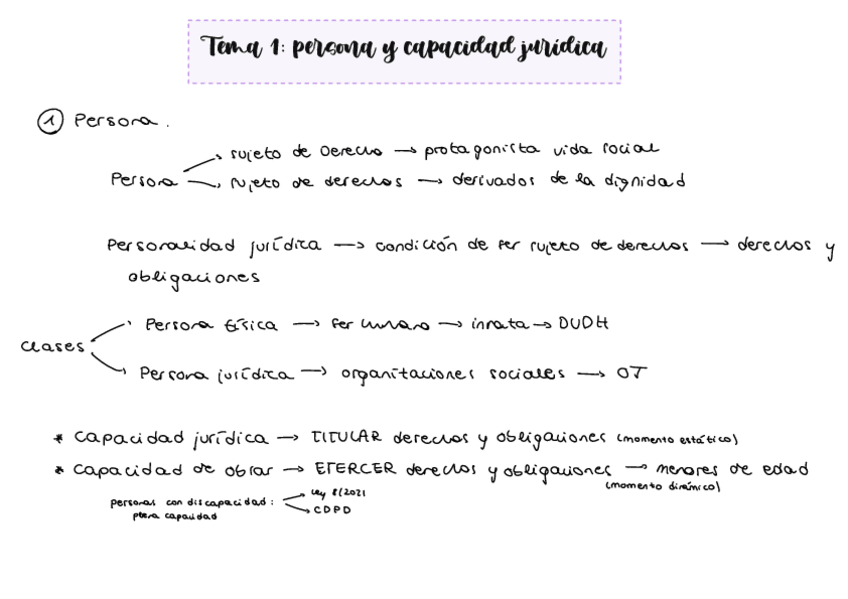 Tema 1: persona y capacidad jurídica
① Persona.
→ sujeto de Derecho → protagonista vida social
Persona → sujeto de derechos → derivados de la dignidad
Personalidad jurídica → condición de ser sujeto de derechos → derechos y
obligaciones
Persona física → ser humano → innata → DUDH
clases
Persona jurídica → organizaciones sociales → OT
* capacidad jurídica → TITULAR derechos y obligaciones (momento estático)
* capacidad de obrar → EJERCER derechos y obligaciones → menores de edad
(momento dinámico)
personas con discapacidad: → Ley 8/2021
plena capacidad → CDPD